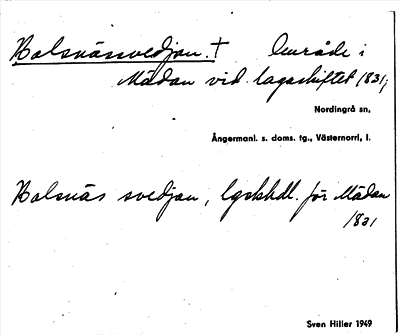 Balsnässvedjan. † Område i
Mädan vid lagaskiftet 1831;
Nordingrå sn,
Ångermanl. s. doms. tg., Västernorrl, l.
Balsnäs svedjan, lgskhdl. för Mädan
1831
Sven Hiller 1949